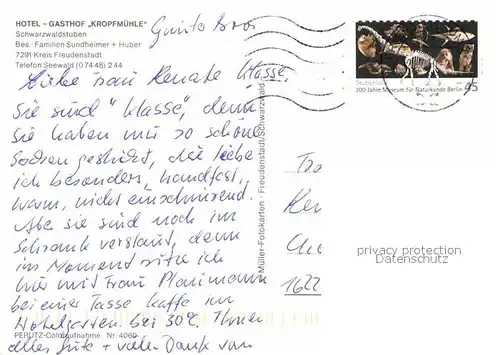 HOTEL – GASTHOF „KROPFMÜHLE"
Schwarzwaldstuben
Bes. Familien Sundheimer + Huber
7291 Kreis Freudenstadt
Telefon Seewald (07448) 244
Liebe Frau Renate Klasse,
Sie sind "klasse", denn
Sie haben mir so schöne
Socken gestrickt, die liebe
ich besonders, handfest,
warm, nicht einschnürend.
Aber sie sind noch im
Schrank verstaut, denn
im Moment sitze ich
hier mit Frau
bei einer Tasse Kaffe im
Hotelgarten bei 30°C. Ihnen
alles Gute + vielen Dank von
Deutschland
200 Jahre Museum für Naturkunde Berlin
45
Müller-Fotokarten · Freudenstadt/Schwarzwald
1622
privacy protection
Datenschutz
PERUTZ-Coloraufnahme Nr. 4060